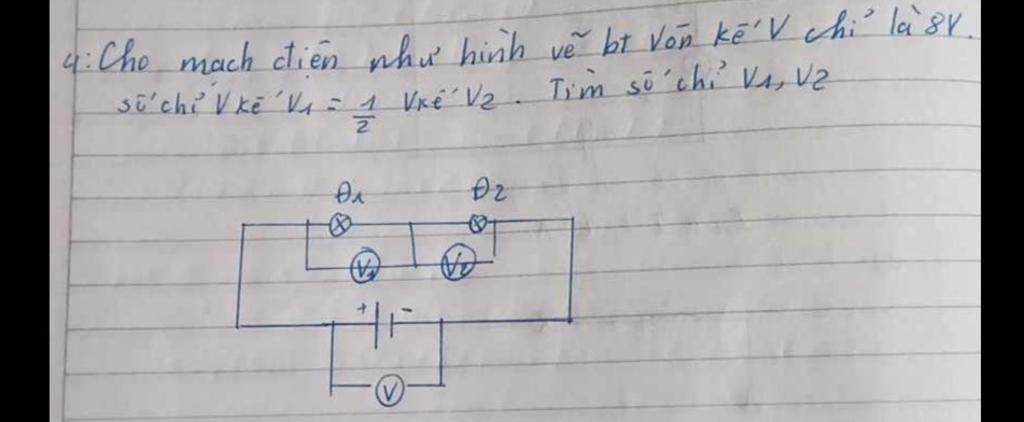 4: Cho mạch điện như hình vẽ bt Vôn kế V chỉ là 8V.
số chỉ V kế V1 = 1/2 Vkế V2. Tìm số chỉ V1, V2
Đ1 Đ2
V1 V2
+ -
V